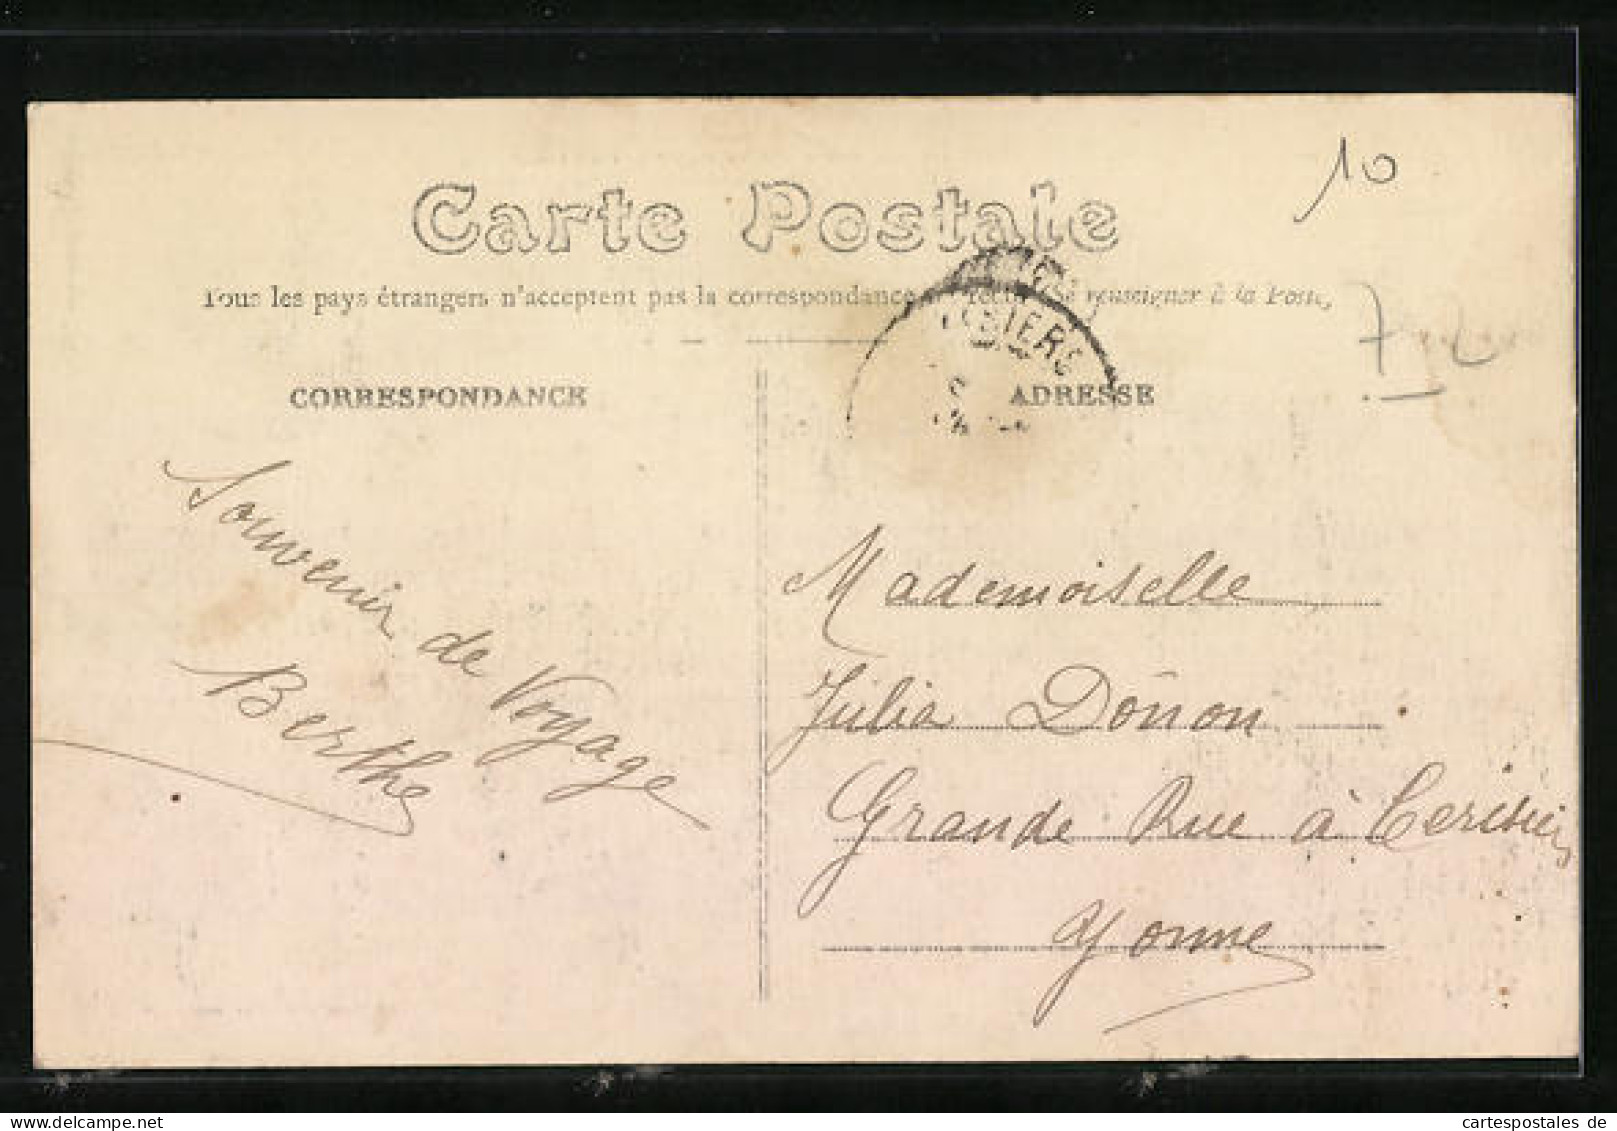 10
Carte Postale
Tous les pays étrangers n'acceptent pas la correspondance se renseigner à la Poste,
7
CORRESPONDANCE
ADRESSE
Souvenir de Voyage
Berthe
Mademoiselle
Julia Donon
Grande Rue à Cerisiers
Yonne
cartespostales de